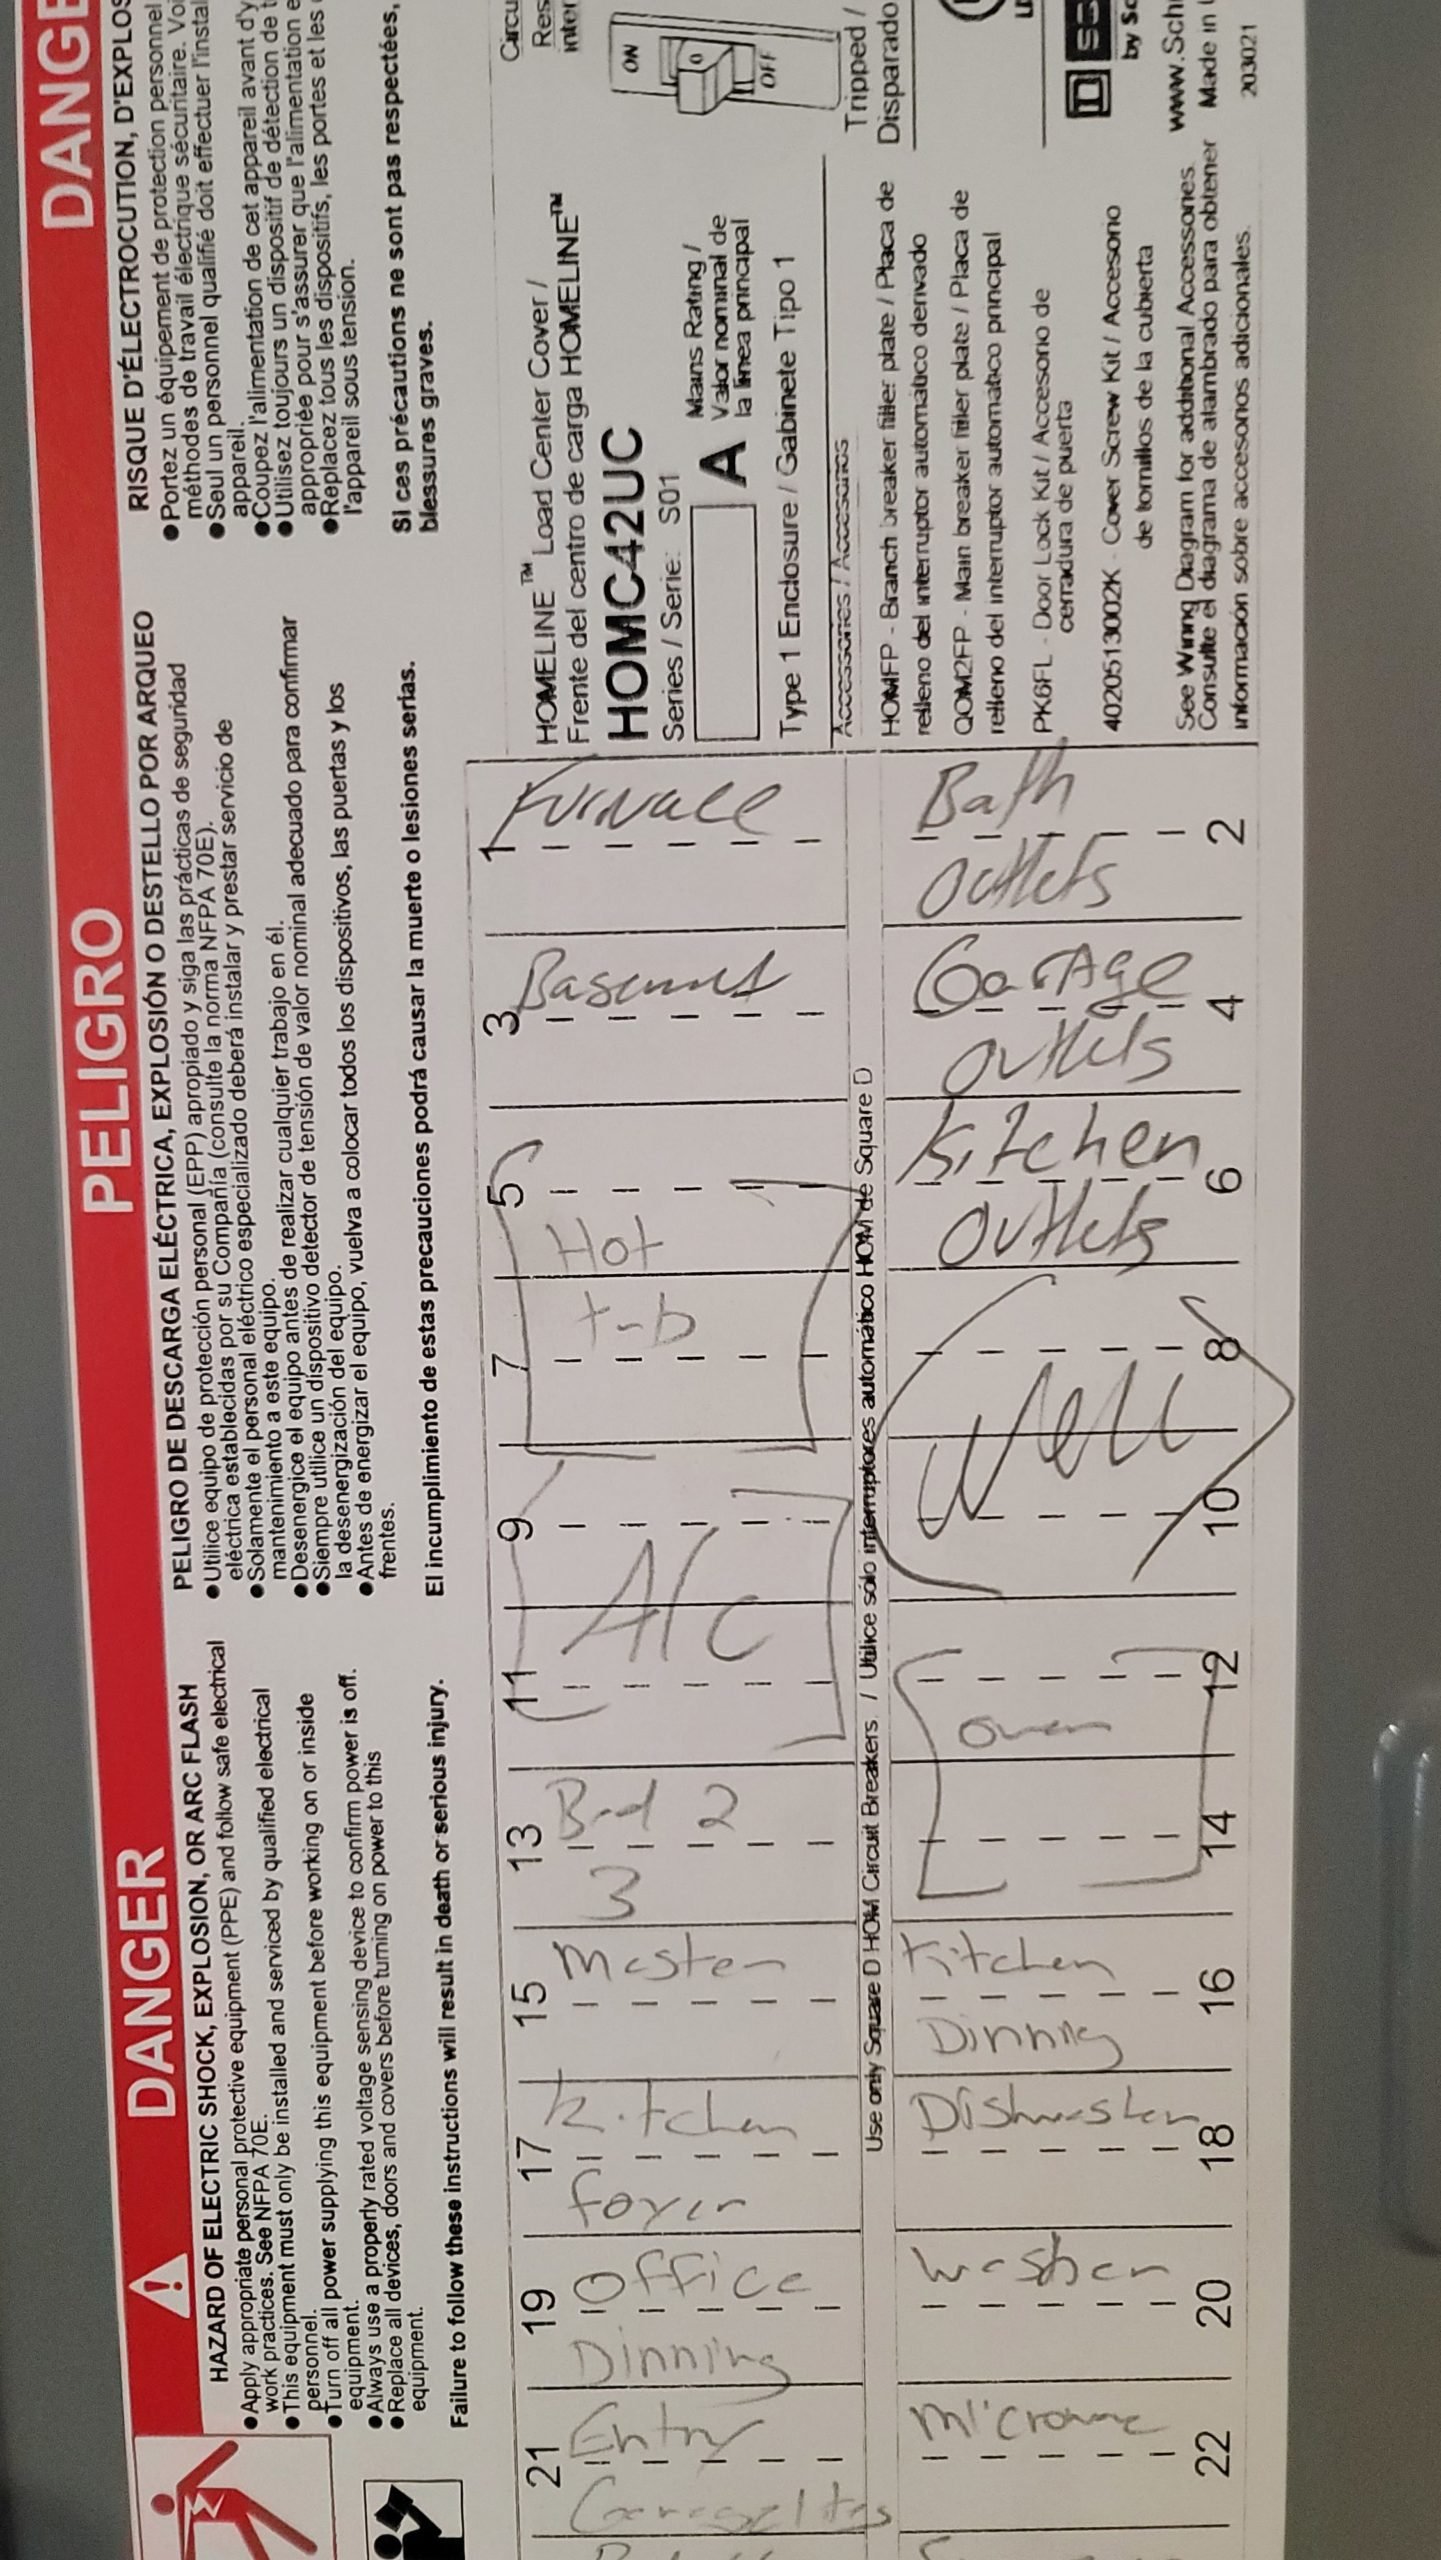 DANGER
HAZARD OF ELECTRIC SHOCK, EXPLOSION, OR ARC FLASH
●Apply appropriate personal protective equipment (PPE) and follow safe electrical
work practices. See NFPA 70E.
●This equipment must only be installed and serviced by qualified electrical
personnel.
●Turn off all power supplying this equipment before working on or inside
equipment.
●Always use a properly rated voltage sensing device to confirm power is off.
●Replace all devices, doors and covers before turning on power to this
equipment.
Failure to follow these instructions will result in death or serious injury.
PELIGRO
PELIGRO DE DESCARGA ELÉCTRICA, EXPLOSIÓN O DESTELLO POR ARQUEO
●Utilice equipo de protección personal (EPP) apropiado y siga las prácticas de seguridad
eléctrica establecidas por su Compañía (consulte la norma NFPA 70E).
●Solamente el personal eléctrico especializado deberá instalar y prestar servicio de
mantenimiento a este equipo.
●Desenergice el equipo antes de realizar cualquier trabajo en él.
●Siempre utilice un dispositivo detector de tensión de valor nominal adecuado para confirmar
la desenergización del equipo.
●Antes de energizar el equipo, vuelva a colocar todos los dispositivos, las puertas y los
frentes.
El incumplimiento de estas precauciones podrá causar la muerte o lesiones serias.
DANGE
RISQUE D'ÉLECTROCUTION, D'EXPLOS
●Portez un équipement de protection personnel
méthodes de travail électrique sécuritaire. Voi
●Seul un personnel qualifié doit effectuer l'instal
appareil.
●Coupez l'alimentation de cet appareil avant d'y
●Utilisez toujours un dispositif de détection de t
appropriée pour s'assurer que l'alimentation e
●Replacez tous les dispositifs, les portes et les
l'appareil sous tension.
Si ces précautions ne sont pas respectées,
blessures graves.
21 Entry
19 Office
Dinning
17 Kitchen
Foyer
15 Master
13 Bed 2
3
11 9 A/C
7 5 Hot
tub
3 Basement
1 Furnace
Use only Square D HOM Circuit Breakers. / Utilice sólo interruptores automático HOM de Square D
22 Microwave
20 Washer
18 Dishwasher
16 Kitchen
Dinning
14 12 Oven
10 8 Well
6 Kitchen
outlets
4 Garage
outlets
2 Bath
outlets
HOMELINE™ Load Center Cover /
Frente del centro de carga HOMELINE™
HOMC42UC
Series / Serie: S01
A Mains Rating /
Valor nominal de
la línea principal
Type 1 Enclosure / Gabinete Tipo 1
Accessories / Accesorios
HOMFP - Branch breaker filler plate / Placa de
relleno del interruptor automático derivado
QOM2FP - Main breaker filler plate / Placa de
relleno del interruptor automático principal
PK6FL - Door Lock Kit / Accesorio de
cerradura de puerta
4020513002K - Cover Screw Kit / Accesorio
de tornillos de la cubierta
See Wiring Diagram for additional Accessories.
Consulte el diagrama de alambrado para obtener
información sobre accesorios adicionales.
Circu
Res
inter
ON
OFF
Tripped /
Disparado
by Sc
www.Sch
Made in
203021